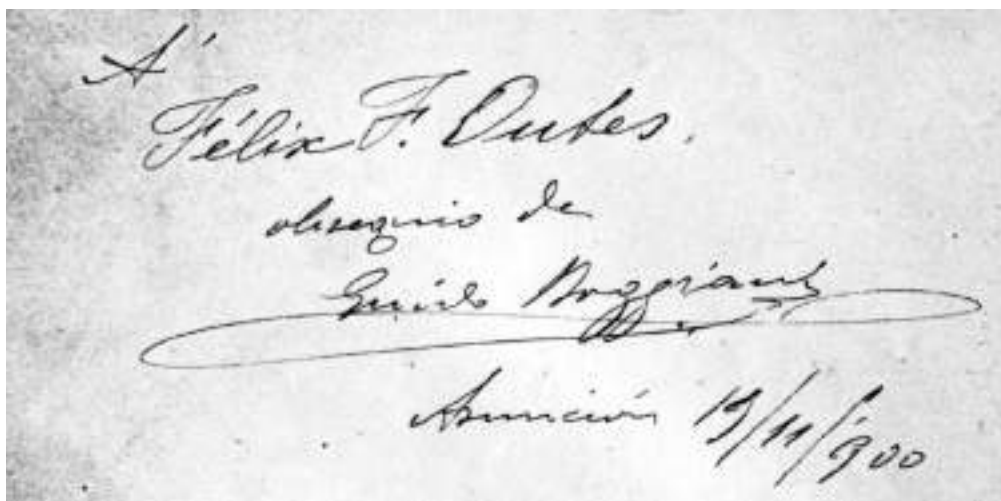 Á
Félix F. Outes.
obsequio de
Guido Boggiani
Asunción 19/11/900